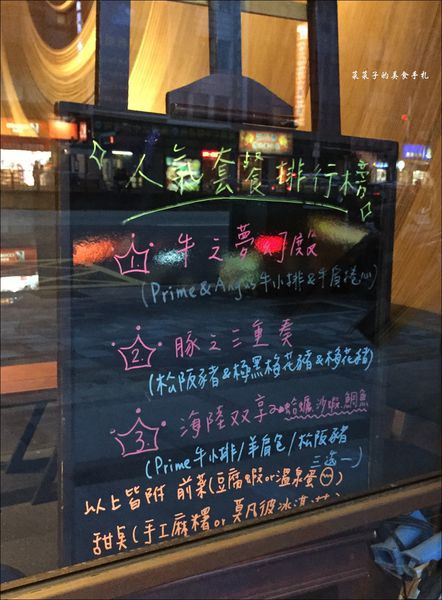 菜菜子的美食手札
人氣套餐排行榜
1. 牛之夢幻
(Prime & Angus 牛小排 & 牛肩捲心)
2. 豚之三重奏
(松阪豬 & 極黑梅花豬 & 梅花豬)
3. 海陸双享 蛤蠣沙蝦鯛魚
(Prime 牛小排/羊肩/松阪豬
三選一)
以上皆附 前菜(豆腐蝦or溫泉蛋)
甜臭(手工麻糬or 莫凡彼冰淇淋)